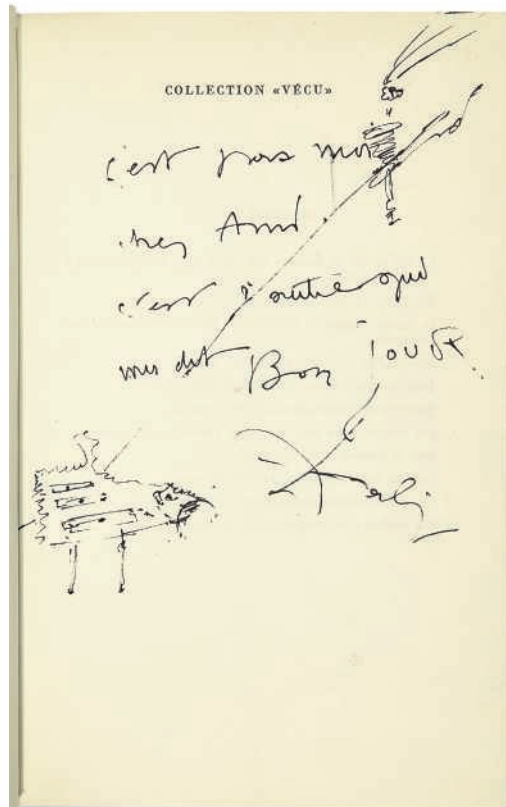 COLLECTION «VÉCU»
c'est pas moi
cher Ami
c'est l'autre qui
dit Bon jour
Dali